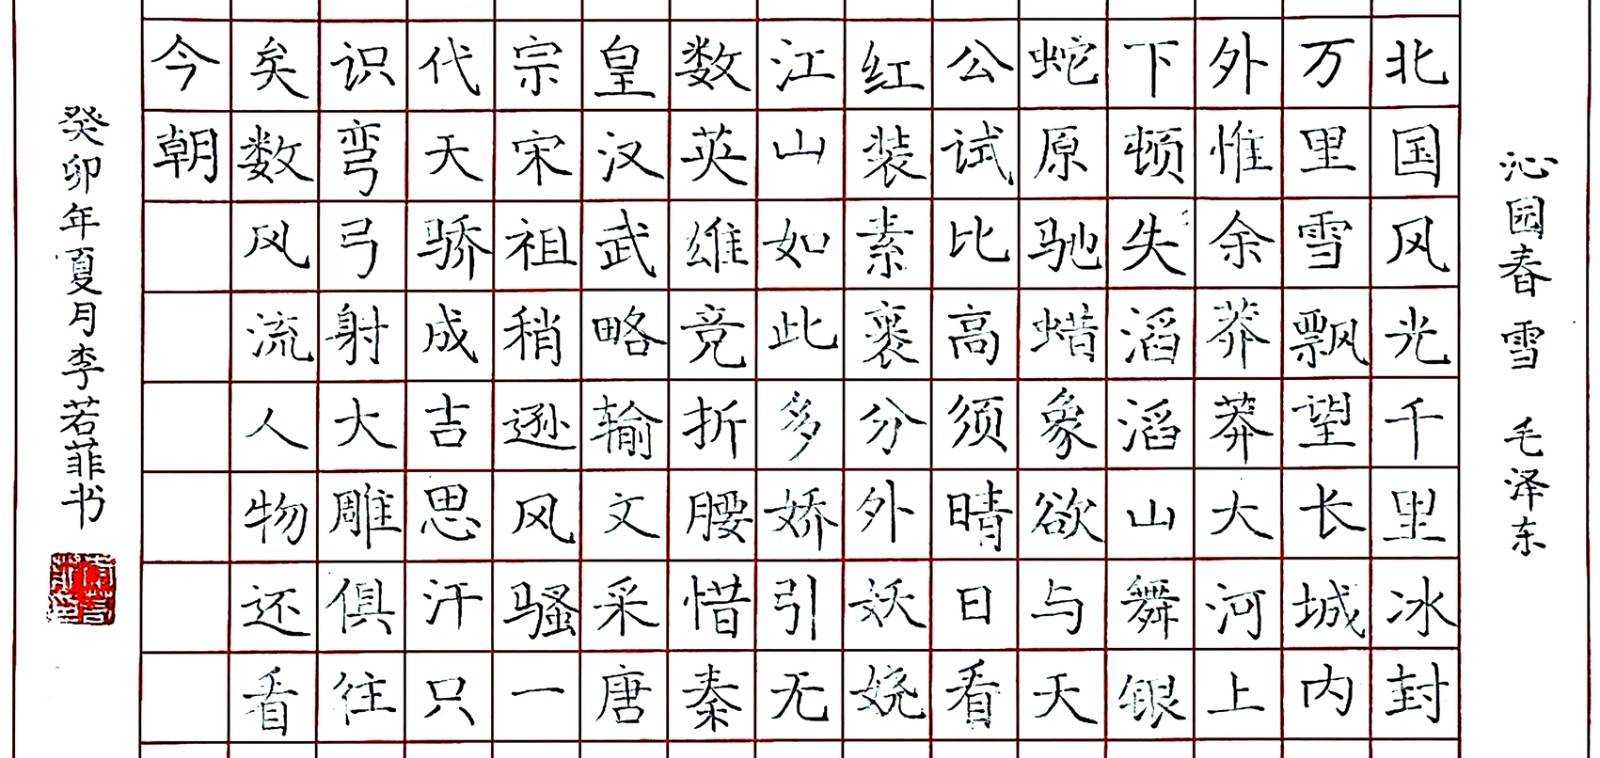 沁园春 雪 毛泽东
北国风光千里冰封
万里雪飘望长城内
外惟余莽莽大河上
下顿失滔滔山舞银
蛇原驰蜡象欲与天
公试比高须晴日看
红装素裹分外妖娆
江山如此多娇引无
数英雄竞折腰惜秦
皇汉武略输文采唐
宗宋祖稍逊风骚一
代天骄成吉思汗只
识弯弓射大雕俱往
矣数风流人物还看
今朝
癸卯年夏月李若菲书